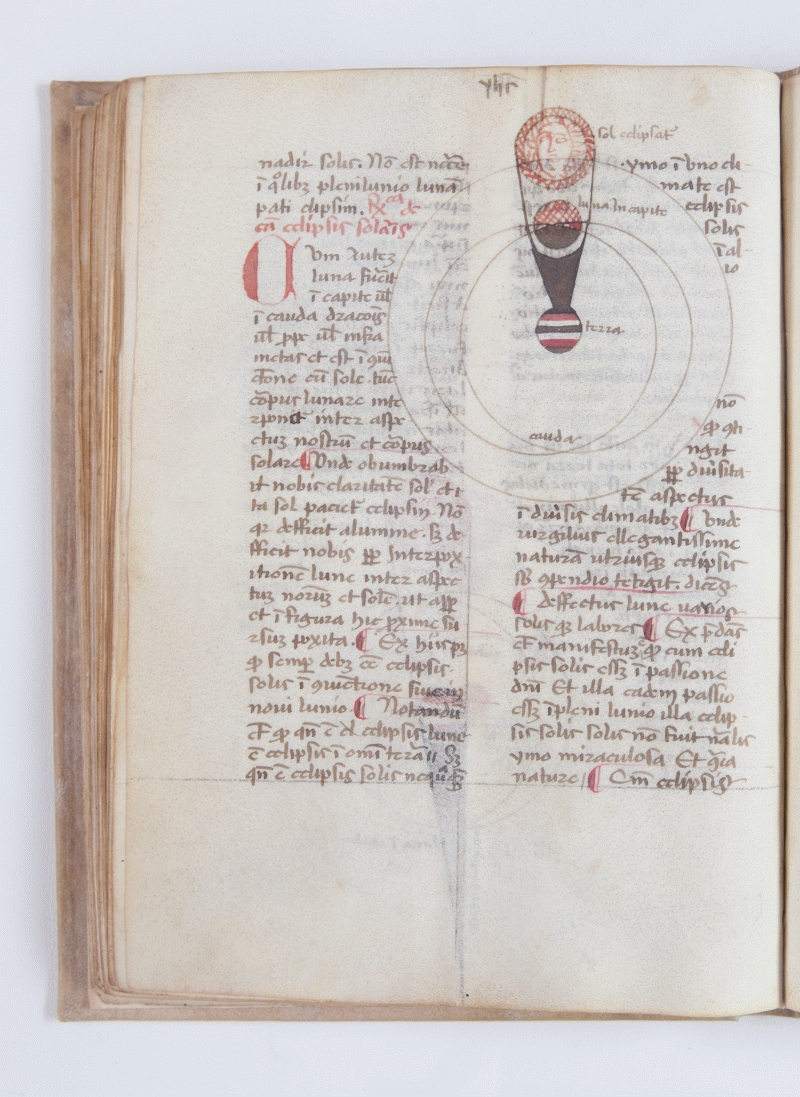 yhs
nadir solis. Nō est neccē
ī qͦlibꝫ plenilunio lunā
pati clipsim. Rxᶜᵃ de
cū eclipsis solaris
Cum autez
luna fūcīt
ī capite ul̄
ī cauda draconis
ul̄ ꝓpe ul̄ infra
metas et est ī
ctione cū sole. tūc
corpus lunare inte
rponit̄ inter aspe
ctuꝫ nostrū et corpus
solare ¶ Unde obumbrab
it nobis claritatē sol̓ et i
ta sol paciet̄ eclipsim. Nō
qꝛ defficit alumine. sꝫ de
fficit nobis ꝓp̄ interpox
itionē lune inter aspec
tuꝫ norūꝫ et solē. ut app̄
et ī figura hic pxime su
rsuꝫ poxita. ¶ Ex hiis pꝫ
ꝙ semp̱ debꝫ ēē eclipsis
solis ī ꝯiūctione siue in
noui lunio. ¶ Notandū
ē ꝙ qn̄ ē eclipsis lune
ē eclipsis ī omī terā Sꝫ
qn̄ ē eclipsis solis nequaqꝫ
sol eclipsat̄
luna in capite
terra
cauda
ymo ī uno cli-
mate est
eclipsis
solis
ī al-
io
nō
ꝙ ꝯti
ngit
ꝓp̄ diūsita
tē aspectus
ī diūsis climatibꝫ ¶ Unde
uirgilius ellegantissime
naturā utriusqꝫ eclipsis
sb̄ ꝯpendio tetigit. dicēs
¶ deffectus lune uarios
solisqꝫ labores ¶ Ex pd̄ c̄is
ē manifestuꝫ ꝙ cum ecli
psis solis essꝫ ī passione
dn̄i Et illa eadem passio
essꝫ ī pleni lunio illa eclip-
sis solis solis nō fuit nālis
ymo miraculosa Et q̄a
nature / ¶ Cm̄ eclipsis